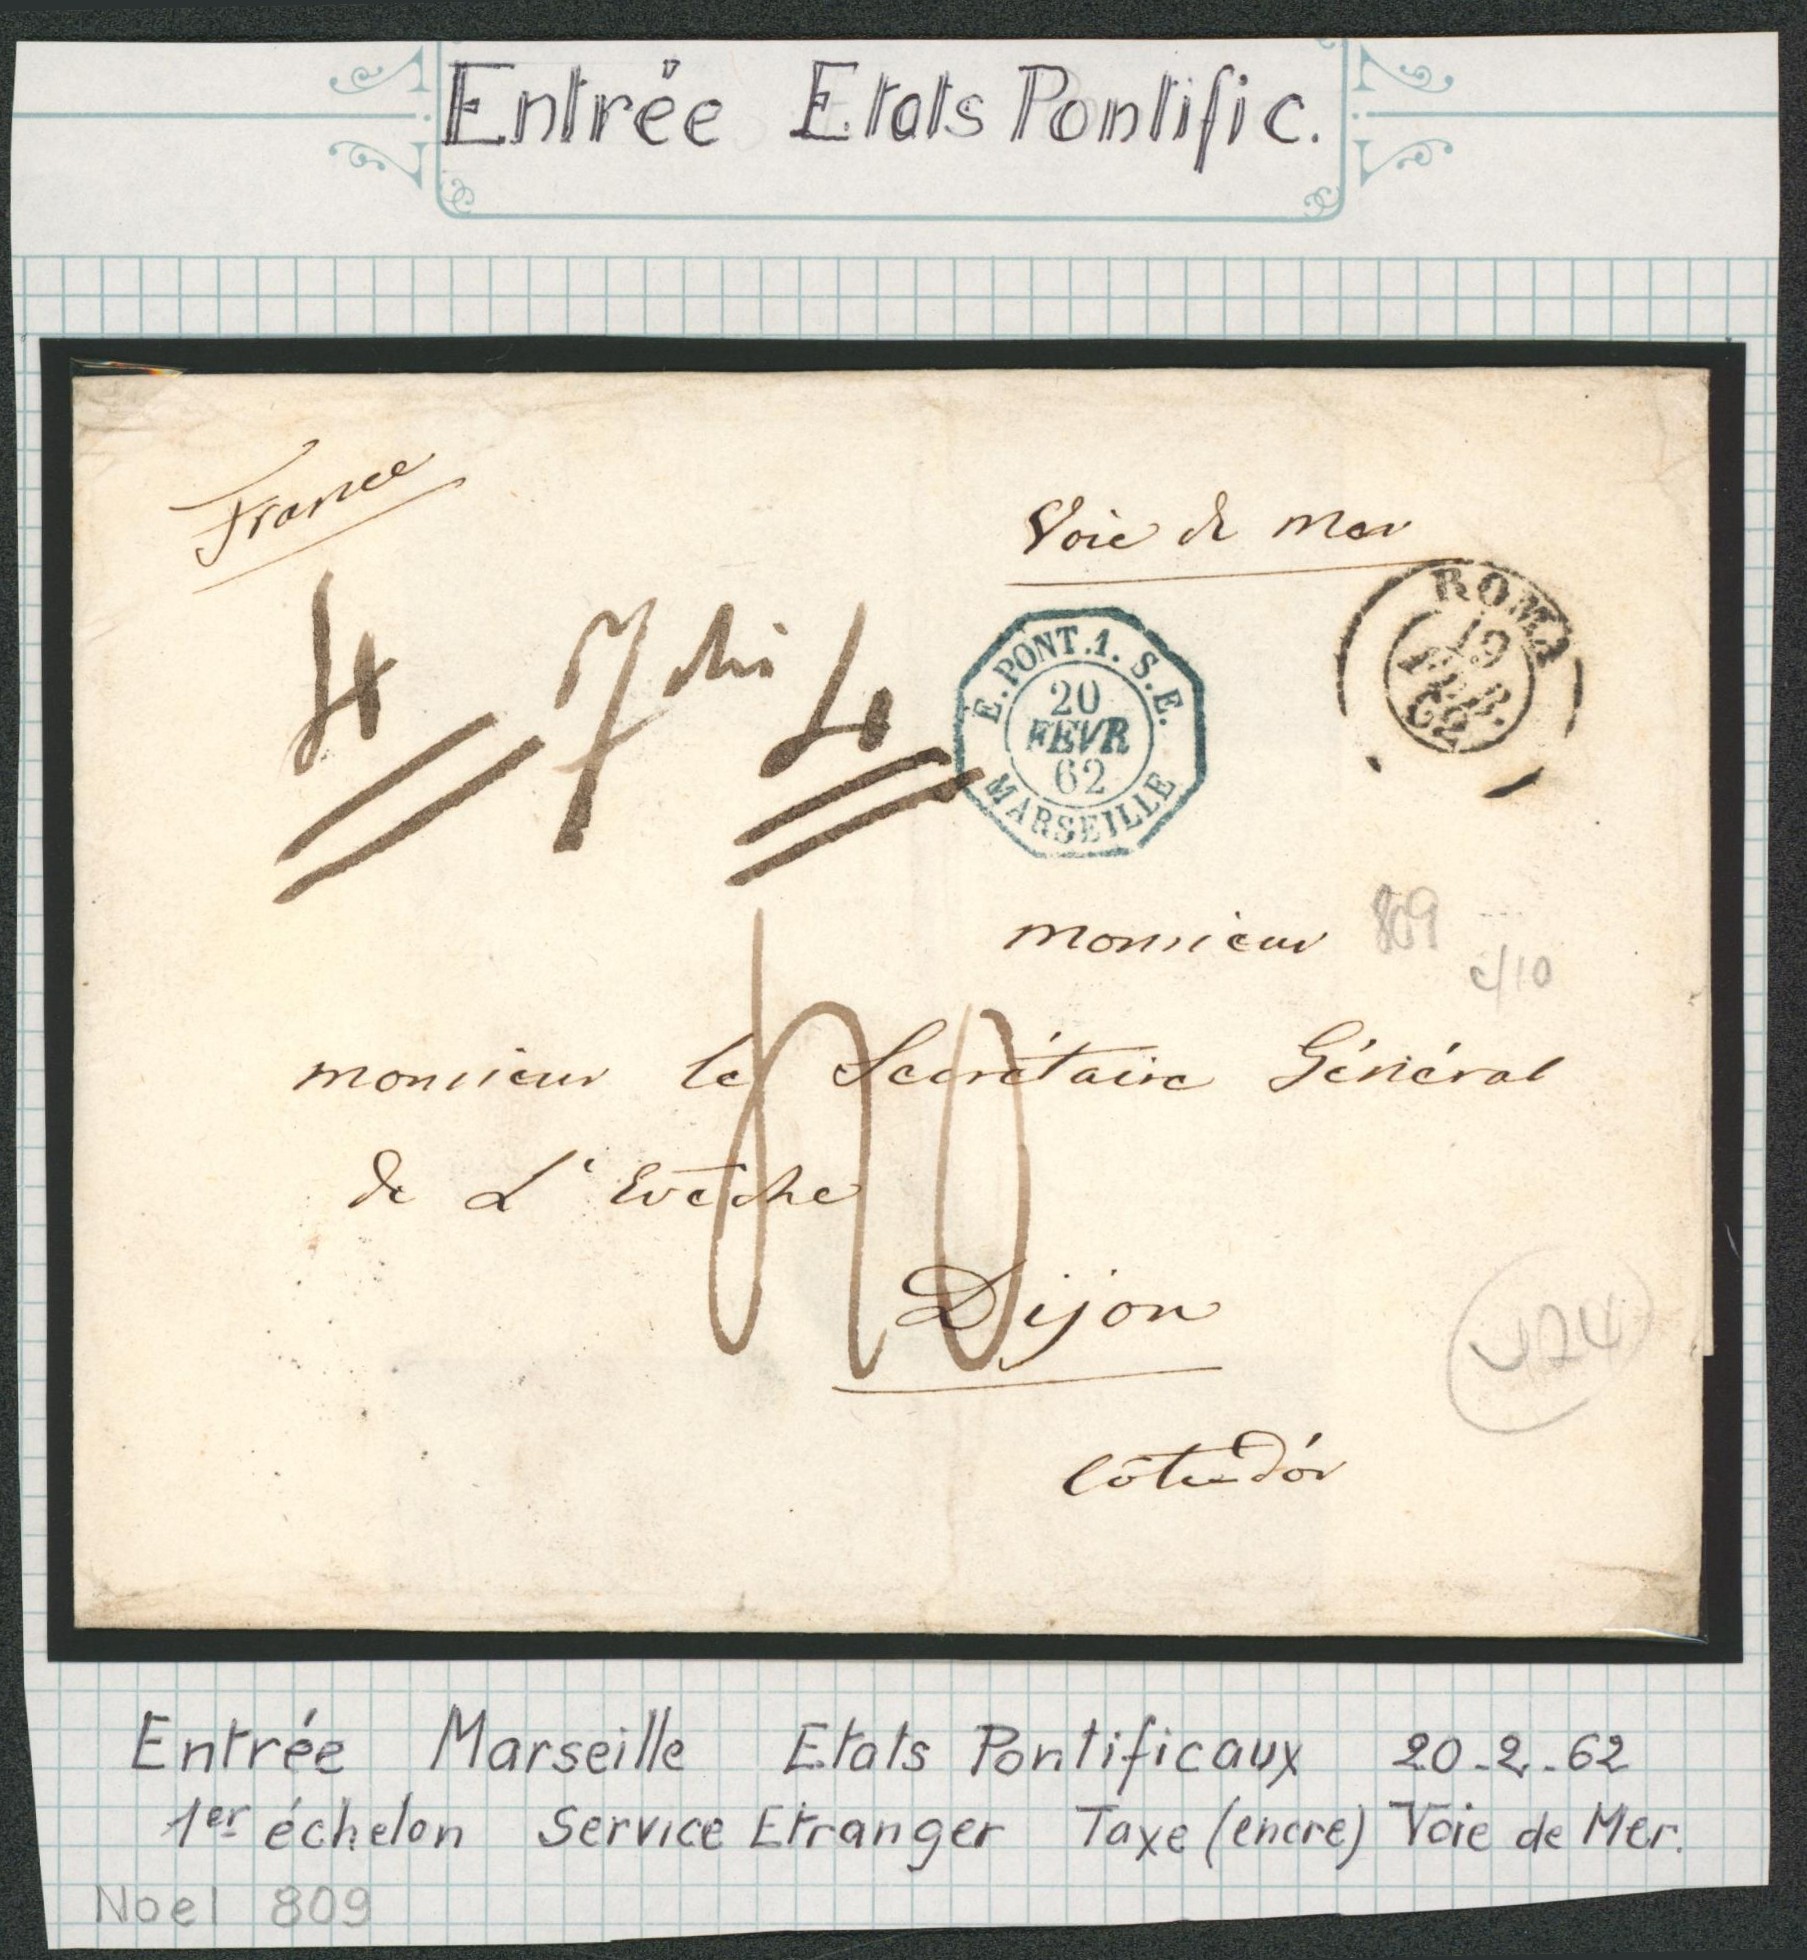 Entrée Etats Pontific.
France
Voie de Mer
4 7 4
E. PONT. 1. S. E.
20
FEVR
62
MARSEILLE
ROMA
19
FEB.
62
Monsieur
809
c/10
Monsieur le Secrétaire Général
de L'Evêché
Dijon
Côte d'Or
Entrée Marseille Etats Pontificaux 20-2-62
1er échelon Service Etranger Taxe (encre) Voie de Mer.
Noel 809